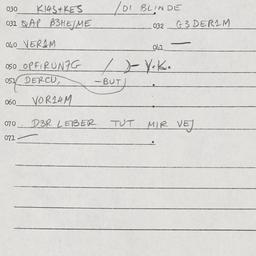 030 KIASTKES / DI BLINDE
031 QAP B3HEJME 032 G3DER1M
040 VER1M 041 —
050 OPFIRUN7G / )- Y.K.
051 DERCU, -BUT
060 VOR1AM
070 D3R LEBER TUT MIR VEJ
071 —